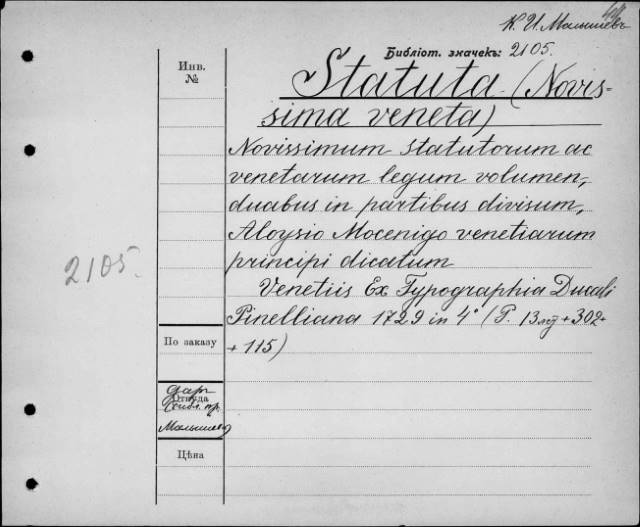 К. И. Малышевъ
Библіот. значекъ: 2105.
Инв.
№
Statuta (Novis-
sima veneta)
Novissimum statutorum ac
venetarum legum volumen,
duabus in partibus divisum,
Aloysio Mocenigo venetiarum
principi dicatum
Venetiis Ex Typographia Ducali
Pinelliana 1729 in 4° (P. 13 + 302 +
+ 115)
2105.
По заказу
даръ
Откуда
Малышева
Цѣна